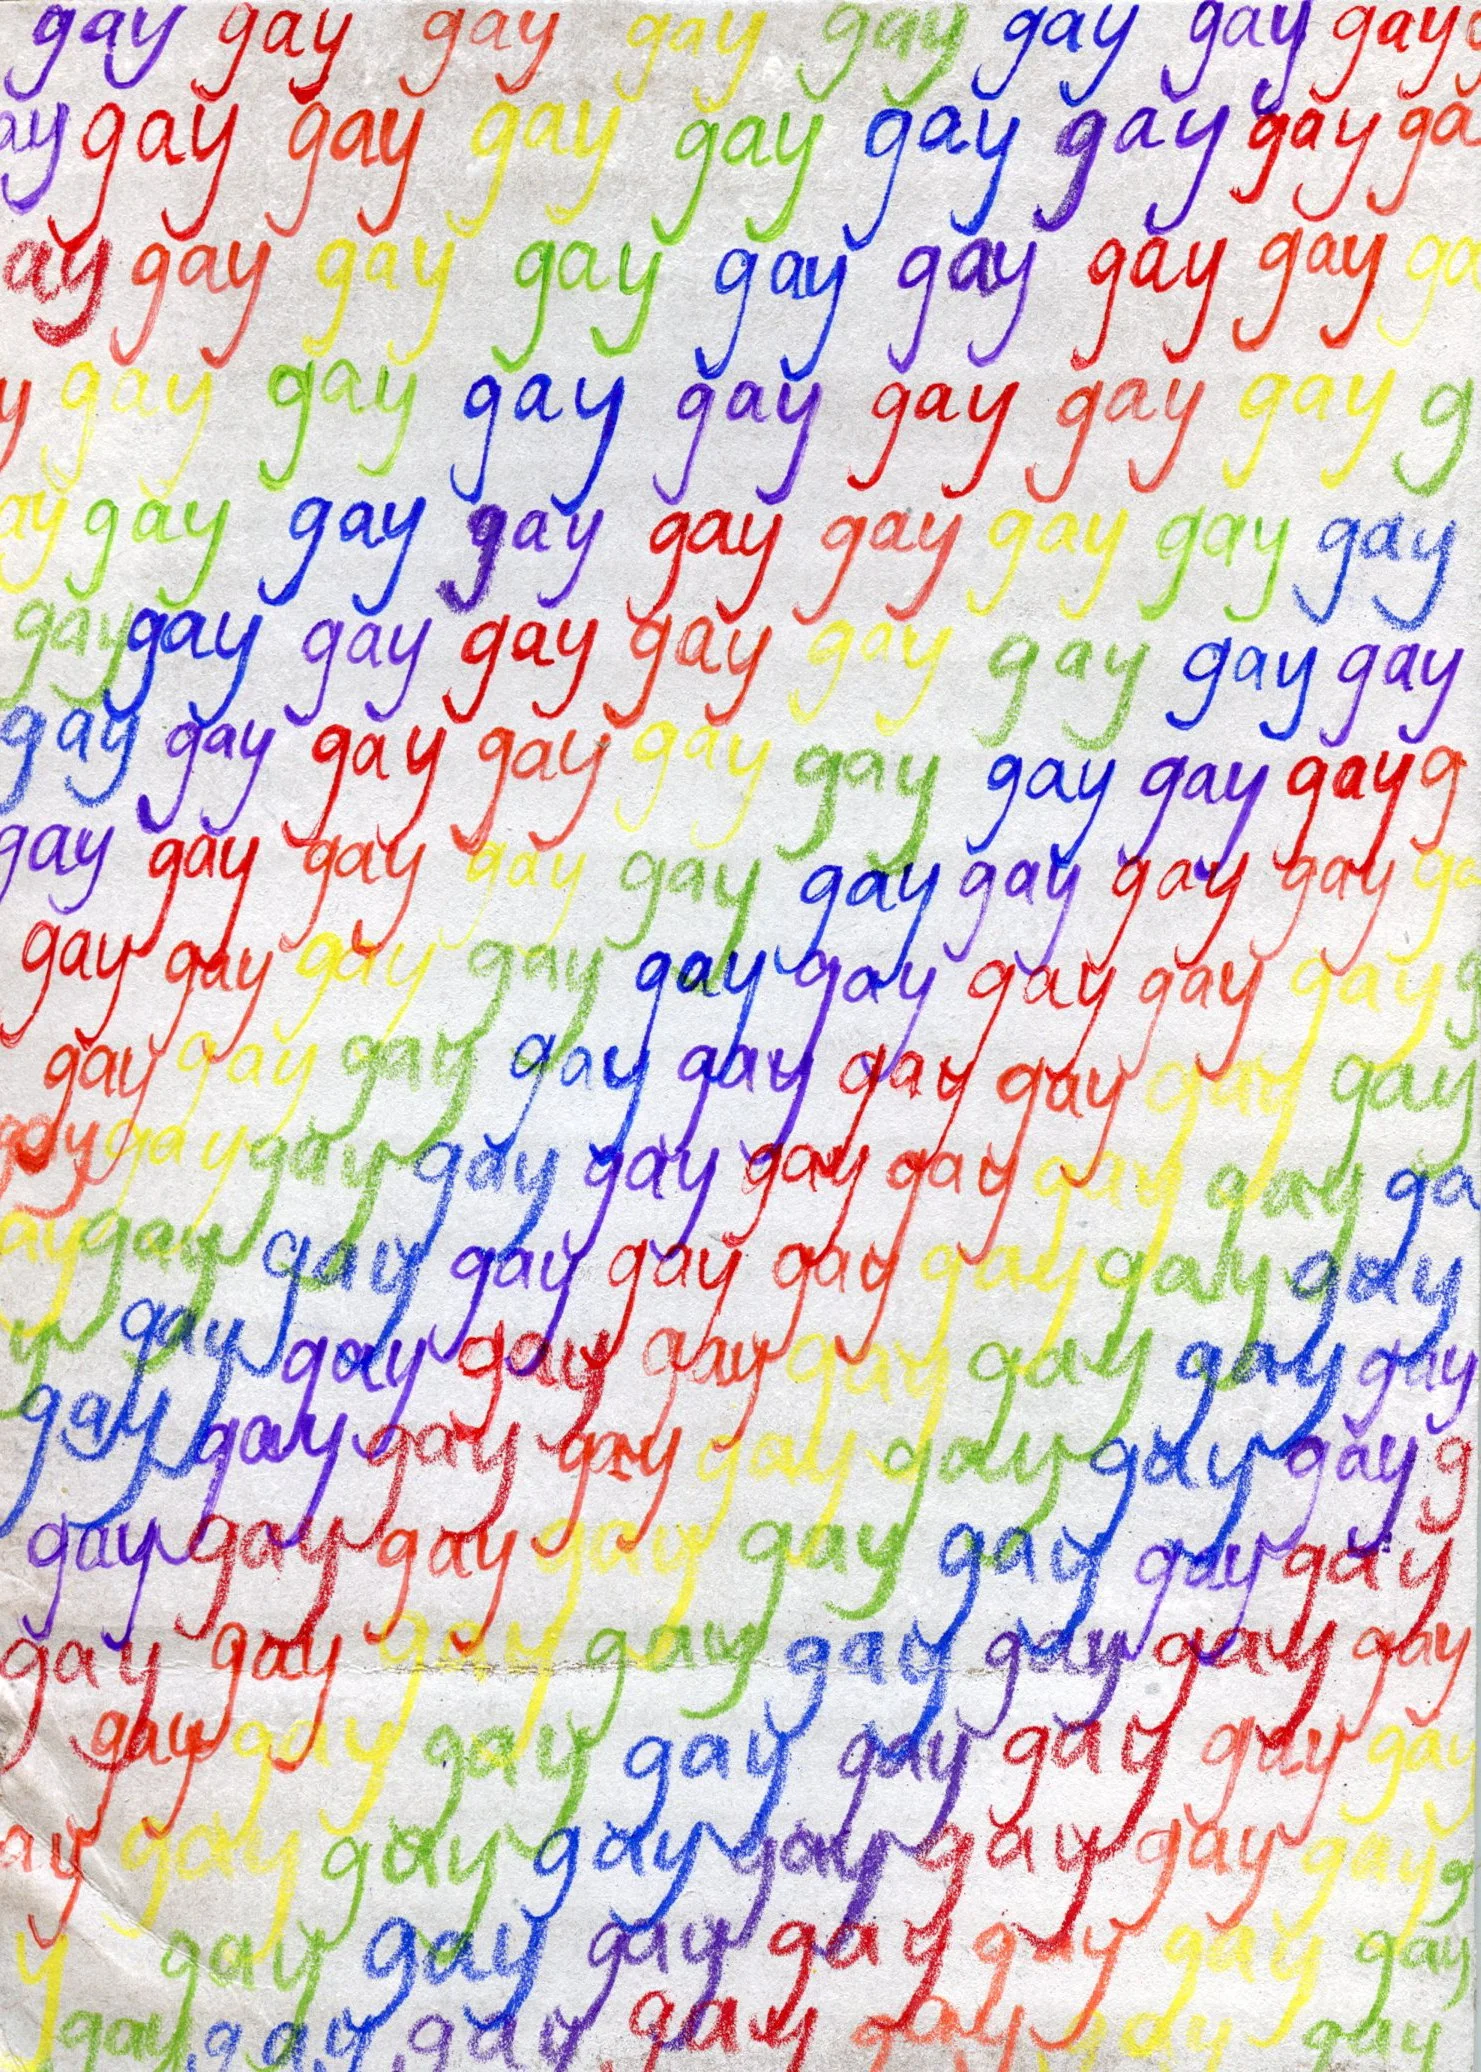 gay gay gay gay gay gay gay gay
ay gay gay gay gay gay gay gay ga
ay gay gay gay gay gay gay gay ga
y gay gay gay gay gay gay gay g
ay gay gay gay gay gay gay gay gay
gay gay gay gay gay gay gay gay gay
gay gay gay gay gay gay gay gay gay g
gay gay gay gay gay gay gay gay gay ga
gay gay gay gay gay gay gay gay gay g
gay gay gay gay gay gay gay gay gay
gay gay gay gay gay gay gay gay gay ga
ay gay gay gay gay gay gay gay gay
y gay gay gay gay gay gay gay gay
gay gay gay gay gay gay gay gay g
gay gay gay gay gay gay gay gay
gay gay gay gay gay gay gay gay
gay gay gay gay gay gay gay gay
ay gay gay gay gay gay gay gay g
y gay gay gay gay gay gay gay
gay gay gay gay gay gay gay